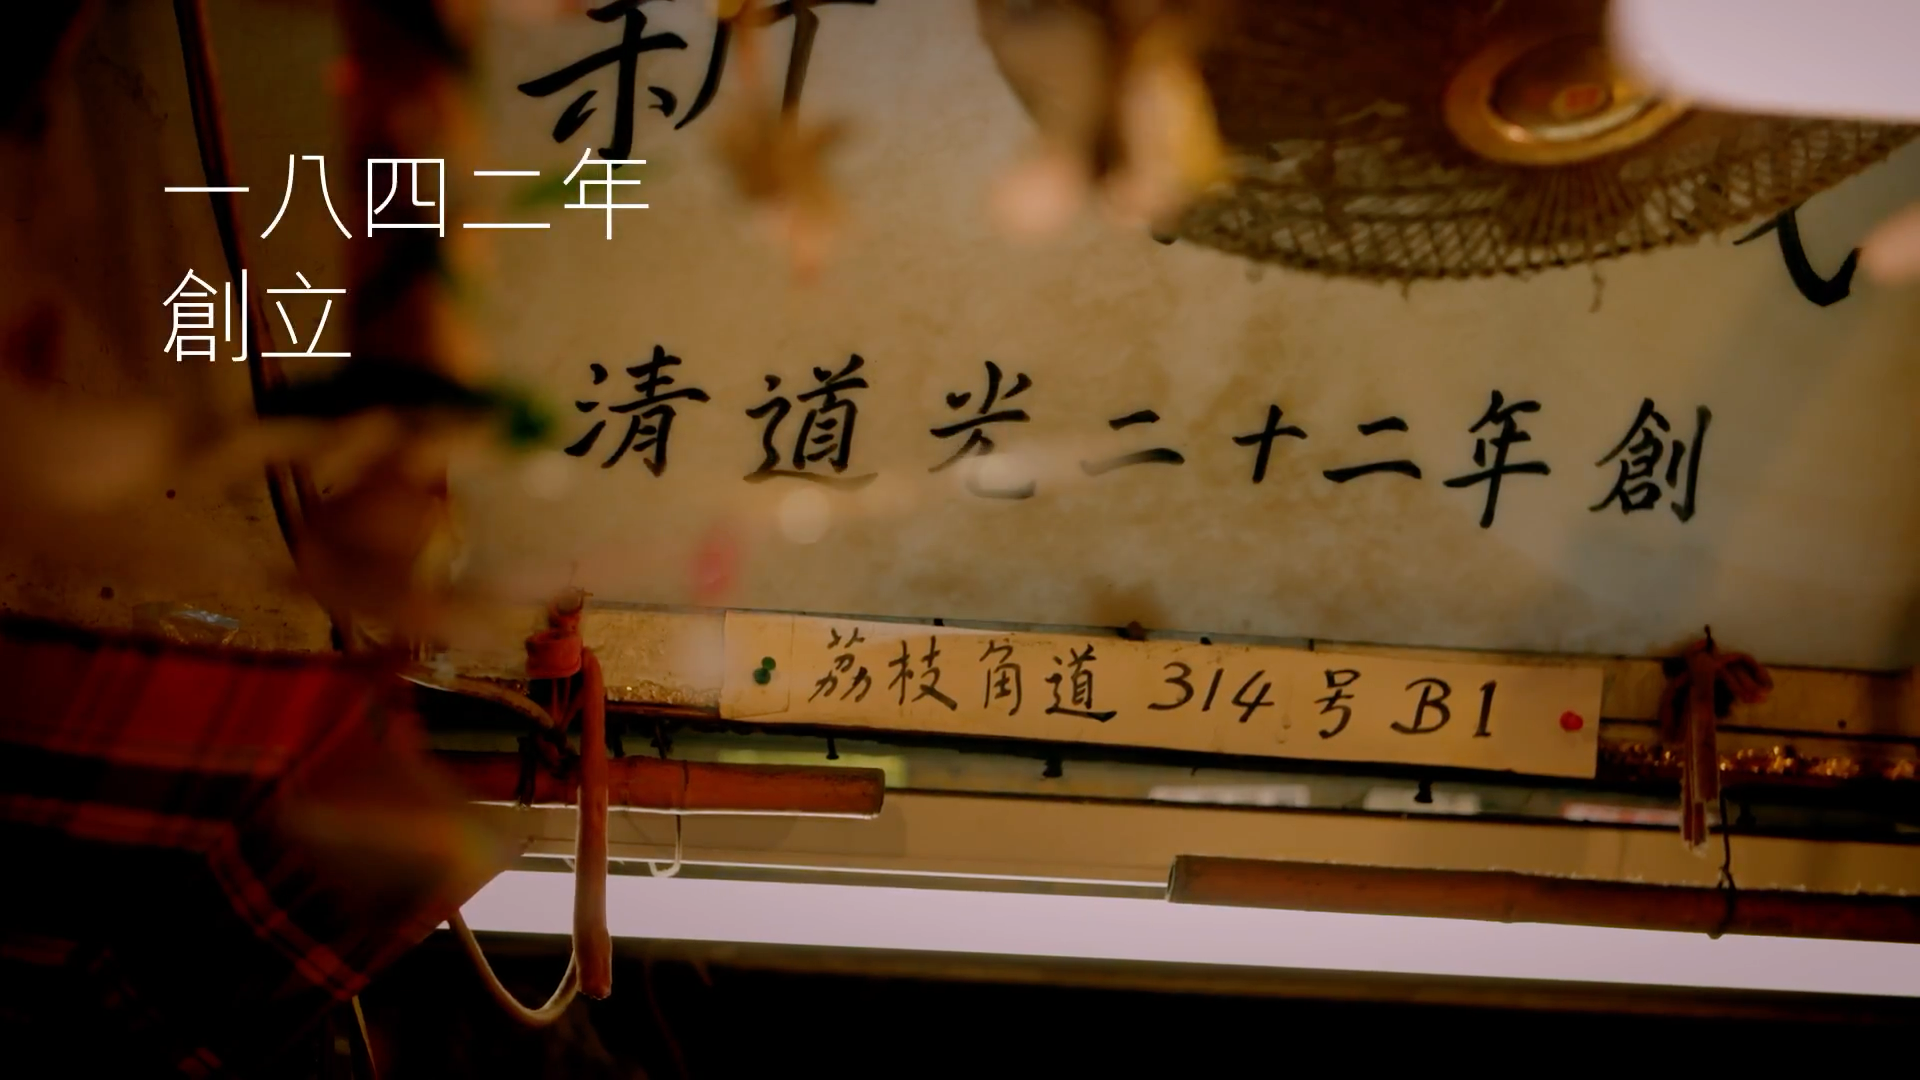 新
一八四二年
創立
清道光二十二年創
荔枝角道 314 号 B1